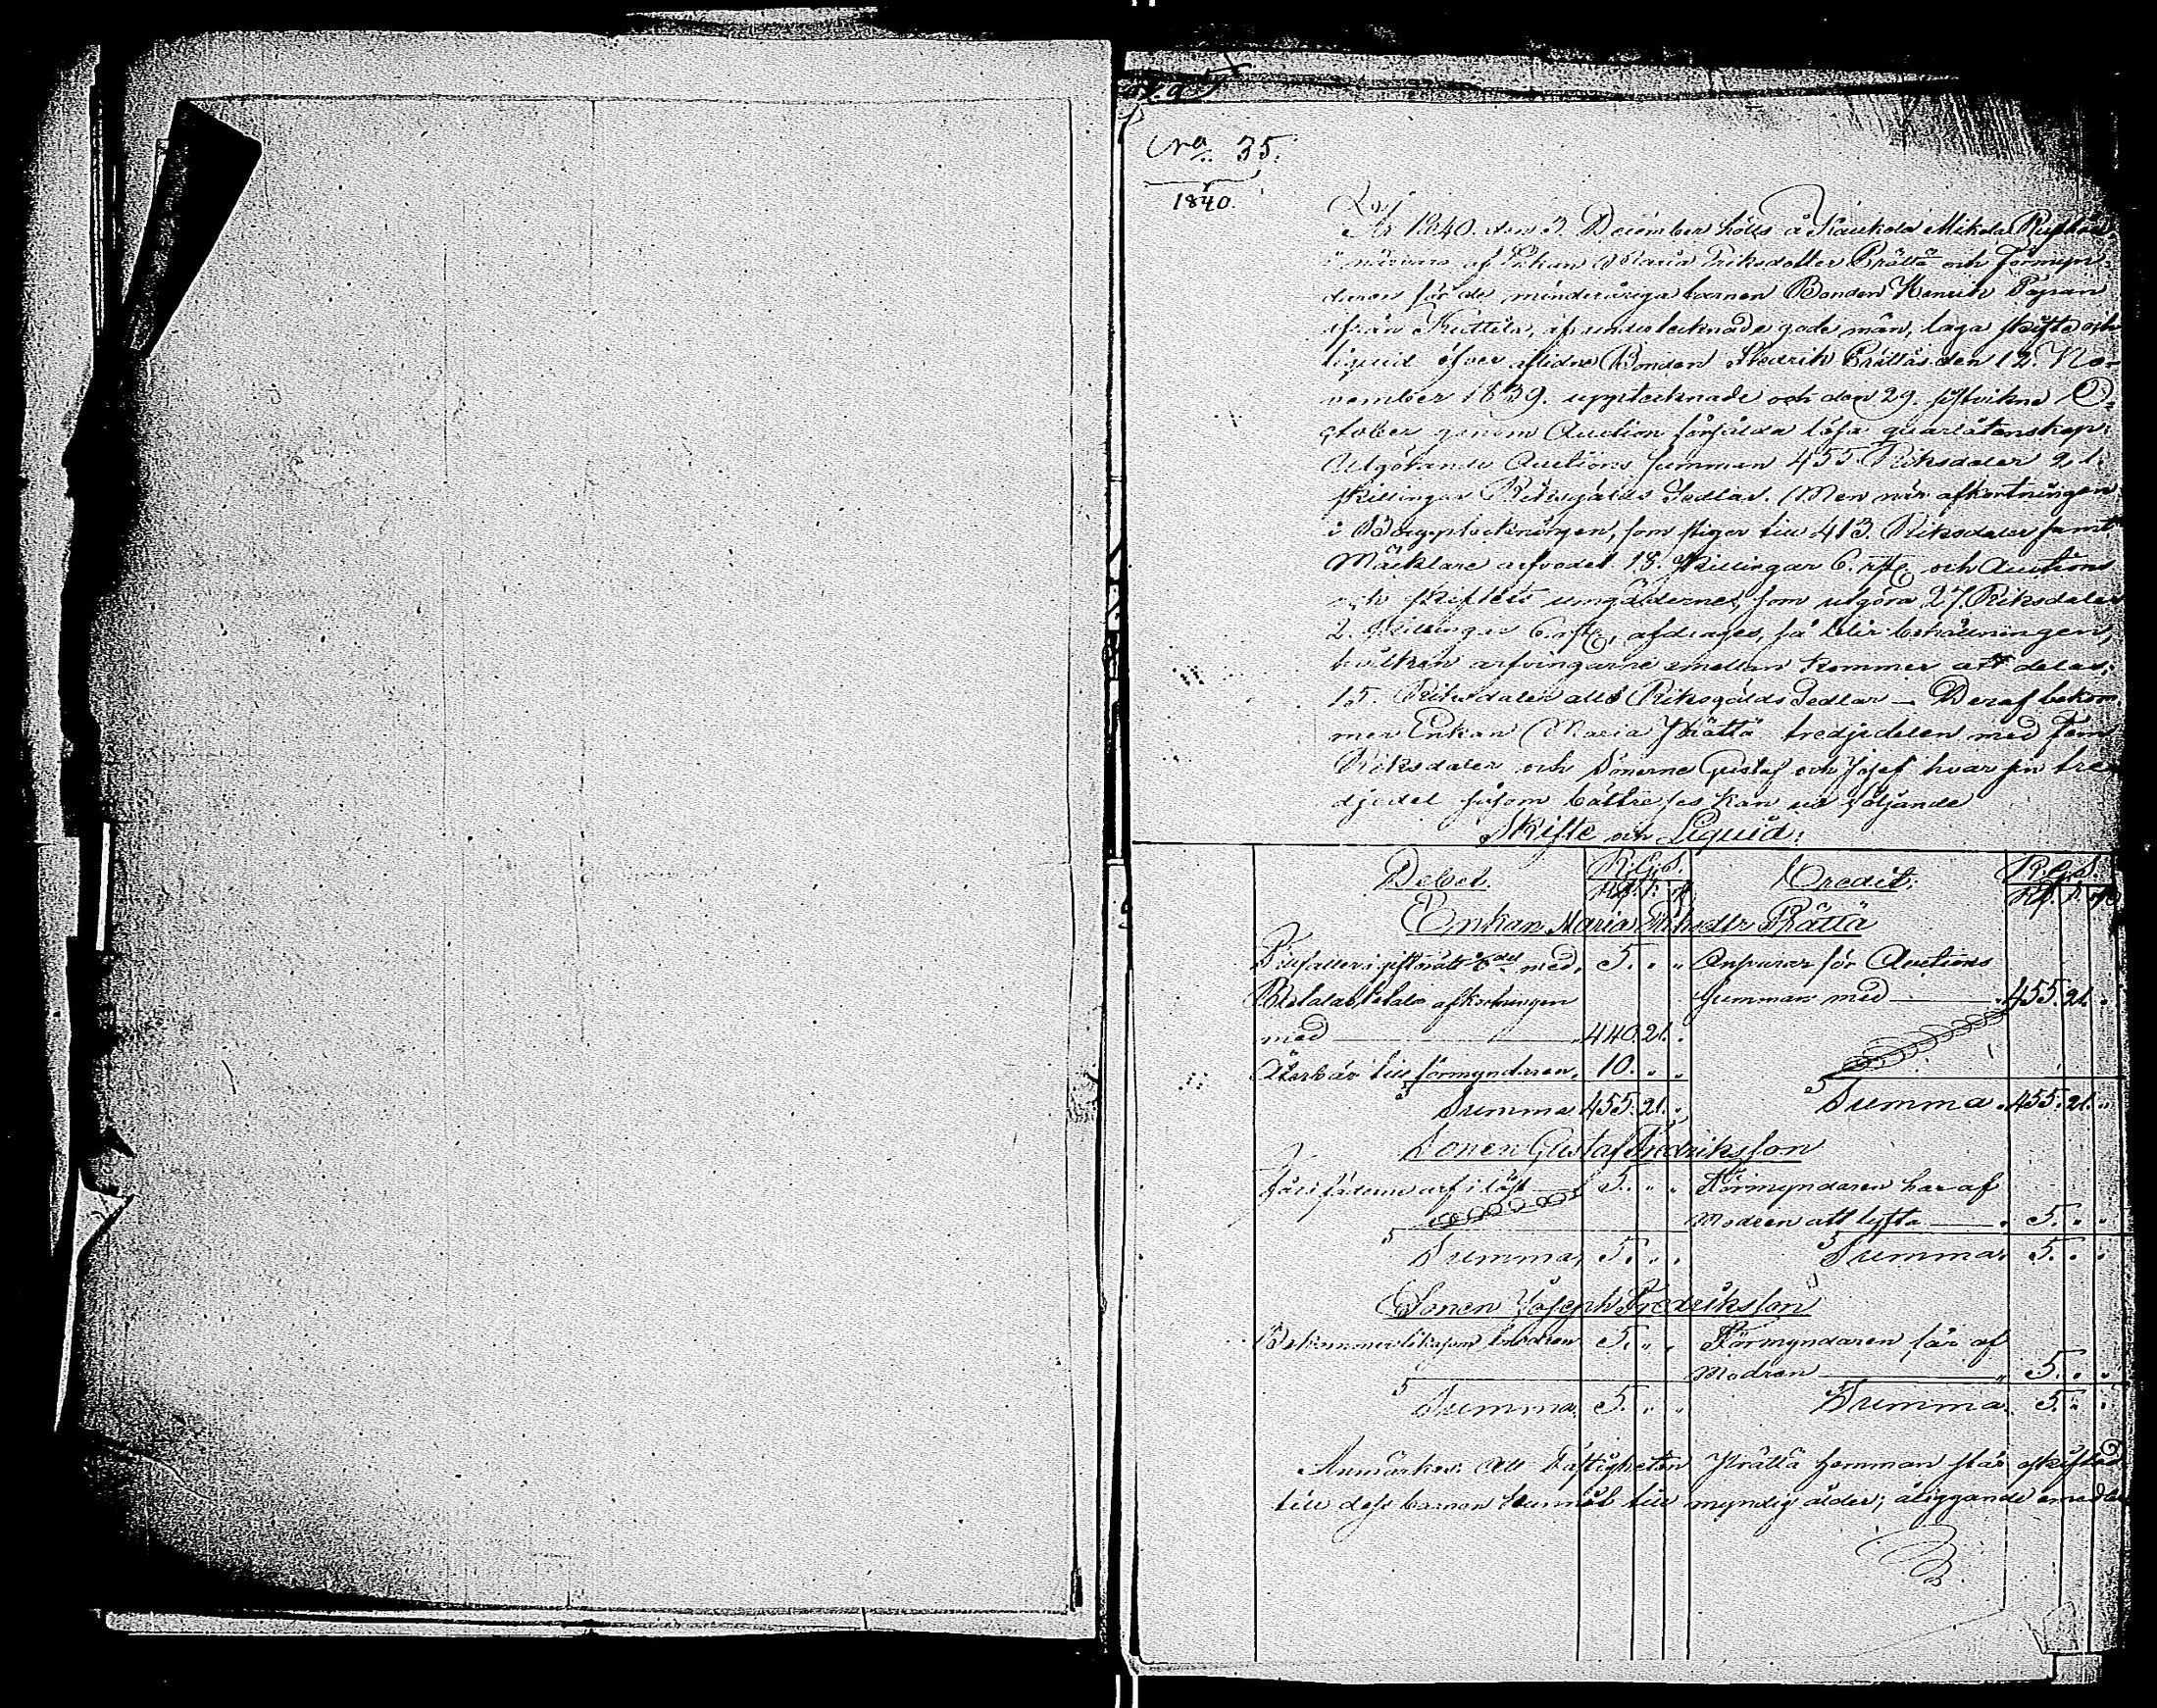 N:o 35.
1840.
År 1840. den 3. December hölls å Kaukola Mikola Rusthåll
i närvaro af Enkan Maria Eriksdotter Prättä och förmyn-
daren för de minderåriga barnen Bonden Henrik
ifrån Kuttila, af undertecknade gode män, laga skifte och
liquid öfver aflidne Bonden Fredrik Prättäs den 12. No-
vember 1839. upptecknade och den 29. sistvikne O-
ctober genom Auction försålda lösa quarlåtenskap.
Utgörande Auctions summan 455 Riksdaler 21.
skillingar Riksgälds Sedlar. Men när afkortningen
i Bouppteckningen, som stiger till 413. Riksdaler samt
Mäklare arfvodet 18. skillingar 6. rst. och Auctions
och skiftets umgälderne, som utgöra 27. Riksdaler
2. skillingar 6. rst., afdrages, så blir behållningen,
hvilken arfvingarne emellan kommer att delas,
15. Riksdaler allt Riksgälds Sedlar — Deraf bekom-
mer Enkan Maria Prättä tredjedelen med fem
Riksdaler och Sönerne Gustaf och Josef hvar sin tre-
djedel såsom bättre ses kan ur följande
Skifte och Liquid.
Debet. R.G.S. Credit. R.G.S.
Enkan Maria Eriksdtr Prättä
Tillfaller i giftorätt med 5. " " Ansvarar för Auctions
Betalar afkortningen summan med 455. 21. "
med 440. 21. "
Återbär till förmyndaren 10. " "
Summa 455. 21. " Summa 455. 21. "
Sonen Gustaf Fredriksson
fäderne arf i löst 5. " " Förmyndaren har af
Modren att lyfta 5. " "
Summa 5. " " Summa 5. " "
Sonen Joseph Fredriksson
Bekommer likasom brodren 5. " " Förmyndaren får af
Modren 5. " "
Summa 5. " " Summa 5. " "
Anmärkes: Att Fastigheten Prättä hemman står oskiftad
till dess barnen hunnit till myndig ålder; åliggande emedlertid